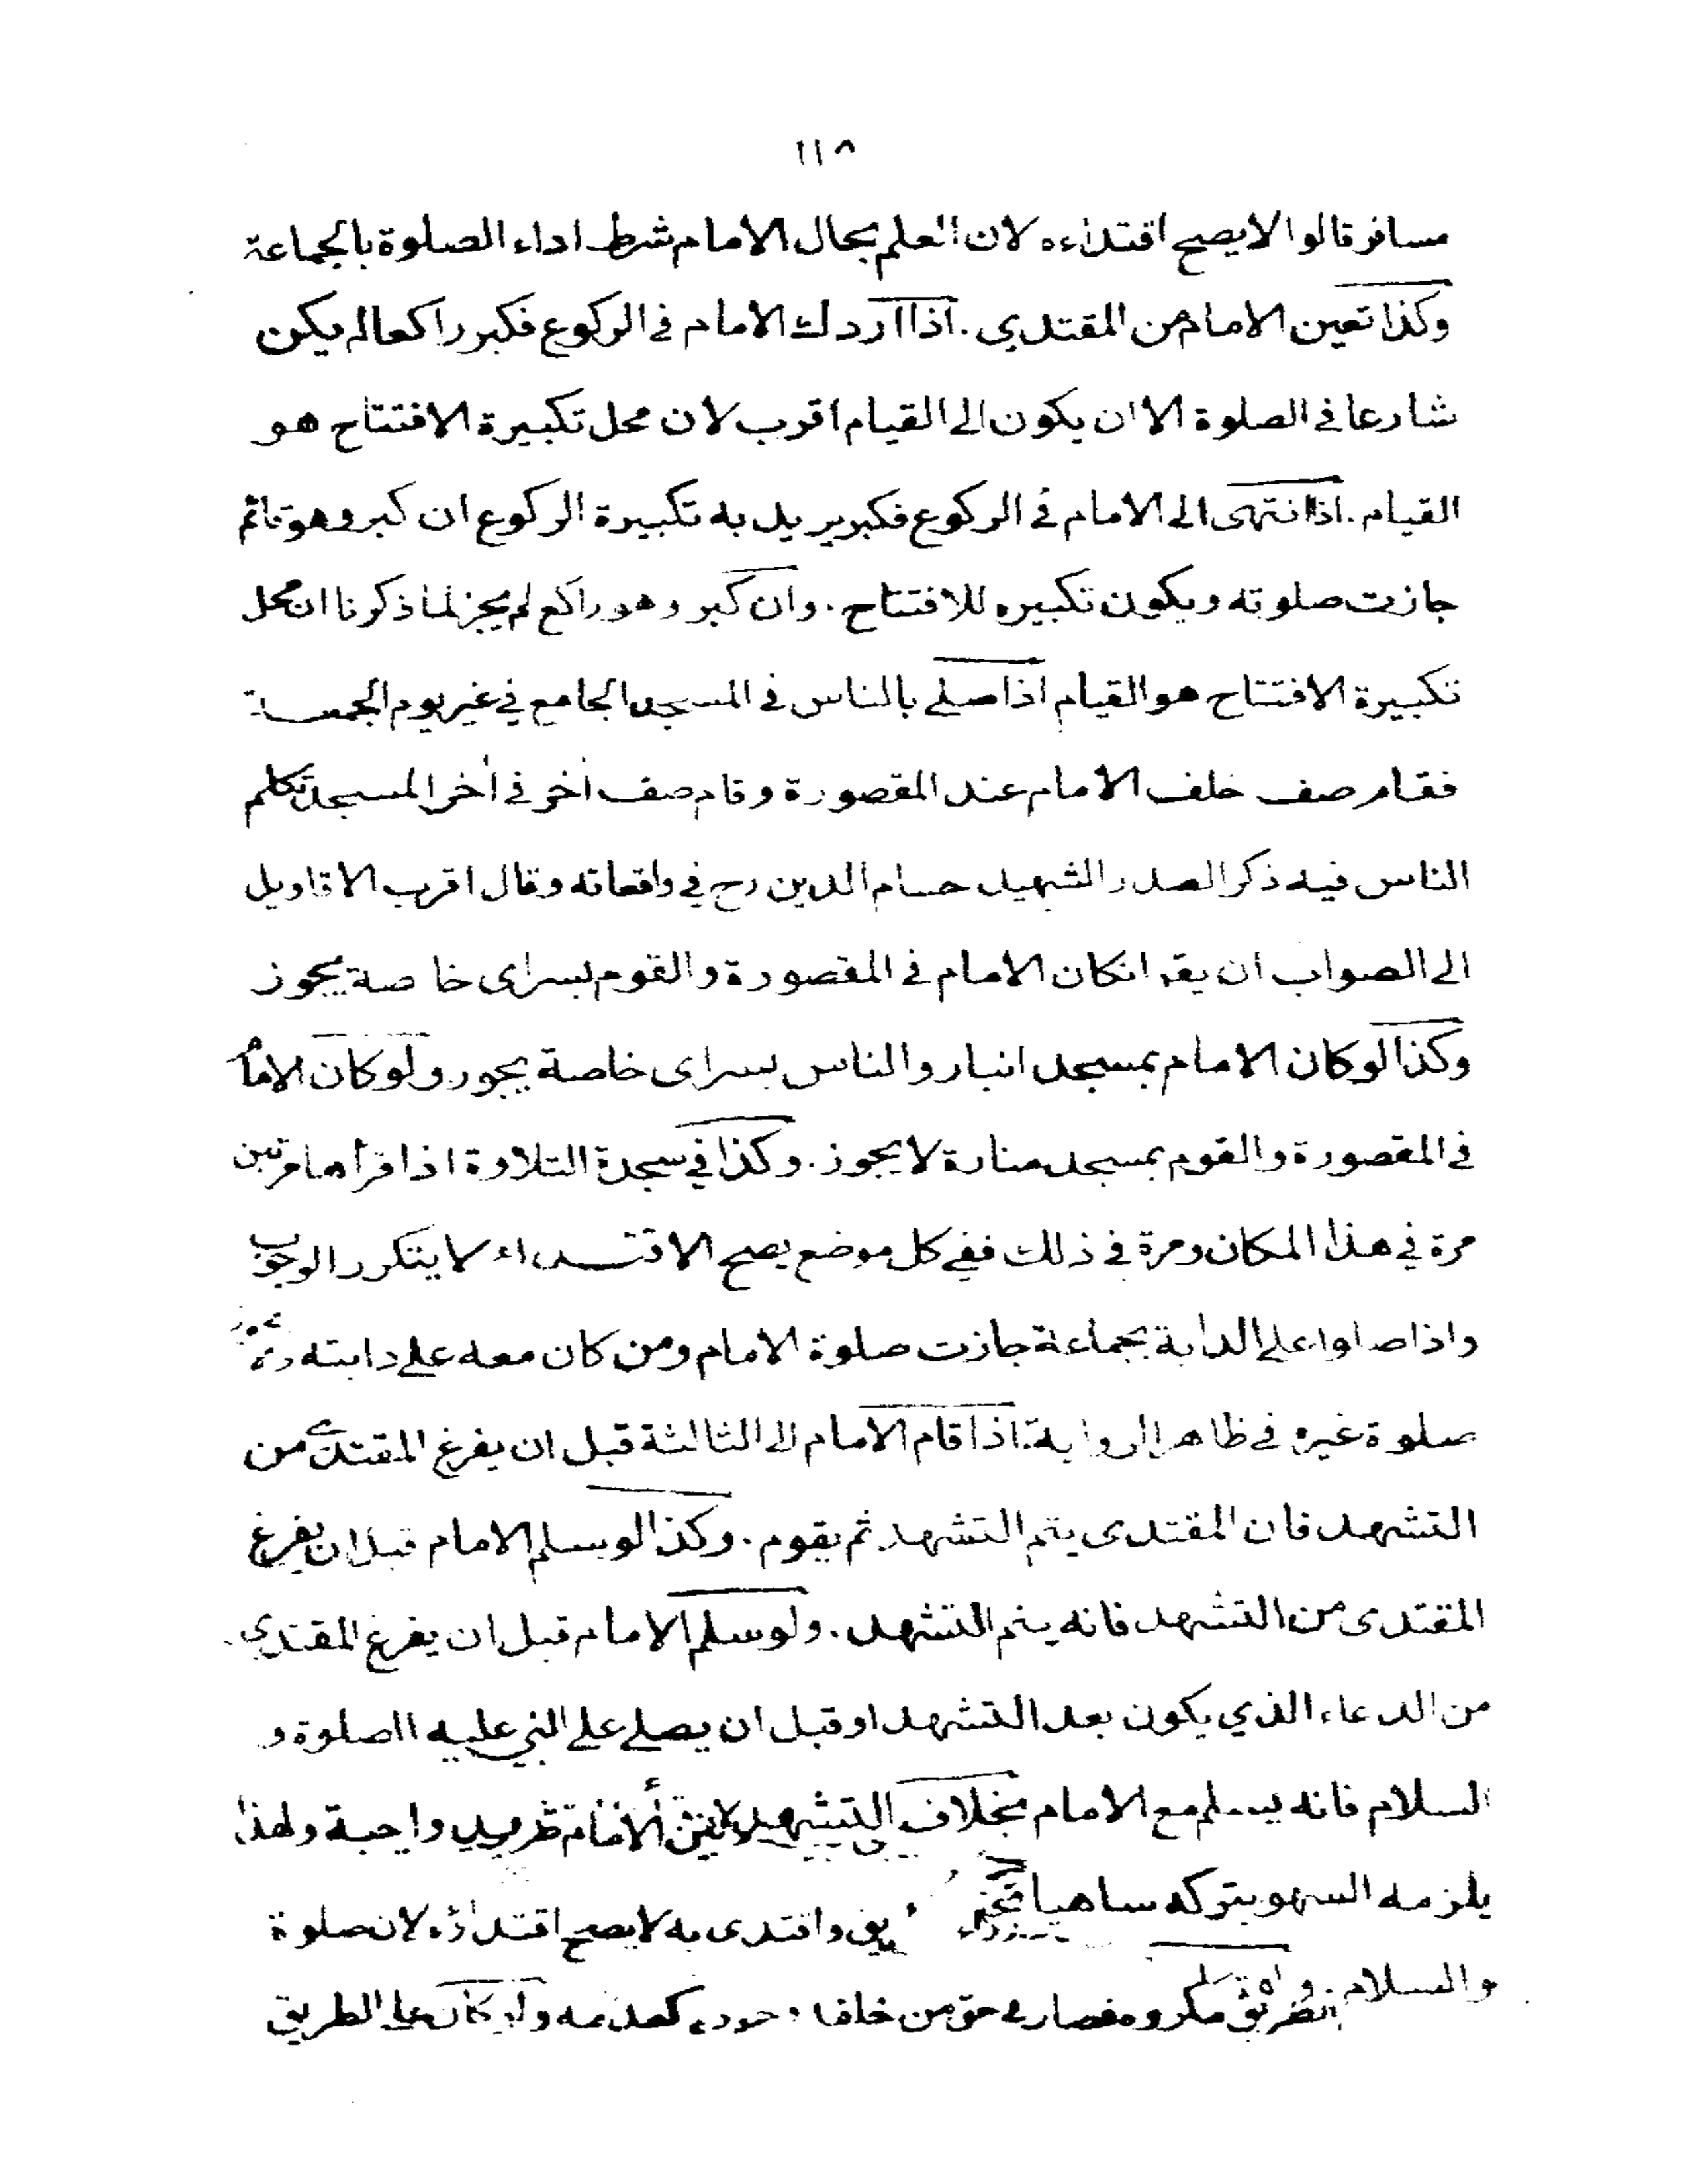 ١١٨
مسافر قالوا لا يصح اقتداءه لان العلم بحال الامام شرط اداء الصلوة بالجماعة
وكذا تعين الامام من المقتدي . اذا ادرك الامام في الركوع فكبر راكعا لم يكن
شارعا في الصلوة الا ان يكون الى القيام اقرب لان محل تكبيرة الافتتاح هو
القيام . اذا انتهى الى الامام في الركوع فكبر يريد به تكبيرة الركوع ان كبر وهو قائم
جازت صلوته ويكون تكبيره للافتتاح . وان كبر وهو راكع لم يجز لما ذكرنا ان محل
تكبيرة الافتتاح هو القيام اذا صلى بالناس في المسجد الجامع في غير يوم الجمعة
فقام صف خلف الامام عند المقصورة وقام صف اخر في اخر المسجد تكلم
الناس فيه ذكر الصدر الشهيد حسام الدين رح في واقعاته وقال اقرب الاقاويل
الى الصواب ان يقـ انكان الامام في المقصورة والقوم بسراى خاصة يجوز
وكذا لو كان الامام بمسجد انبار والناس بسراى خاصة يجوز ولو كان الامام
في المقصورة والقوم بمسجد منارة لا يجوز . وكذا في سجدة التلاوة اذا قرأها مرتين
مرة في هذا المكان ومرة في ذلك ففي كل موضع يصح الاقتداء لا يتكرر الوجوب
واذا صلوا على الدابة بجماعة جازت صلوة الامام ومن كان معه على دابته
صلوة غيره في ظاهر الرواية . اذا قام الامام الى الثالثة قبل ان يفرغ المقتدى من
التشهد فان المقتدى يتم التشهد ثم يقوم . وكذا لو سلم الامام قبل ان يفرغ
المقتدى من التشهد فانه يتم التشهد . ولو سلم الامام قبل ان يفرغ المقتدي
من الدعاء الذي يكون بعد التشهد او قبل ان يصلى على النبي عليه الصلوة و
السلام فانه يسلم مع الامام بخلاف التشهد واجبة ولهذا
يلزمه السهو بتركه ساهيا واقتدى به لا يصح اقتداؤه لان صلوة
والسلام الطريق مكروه فصار في حق من خلفه وجوده كعدمه ولو كان على الطريق